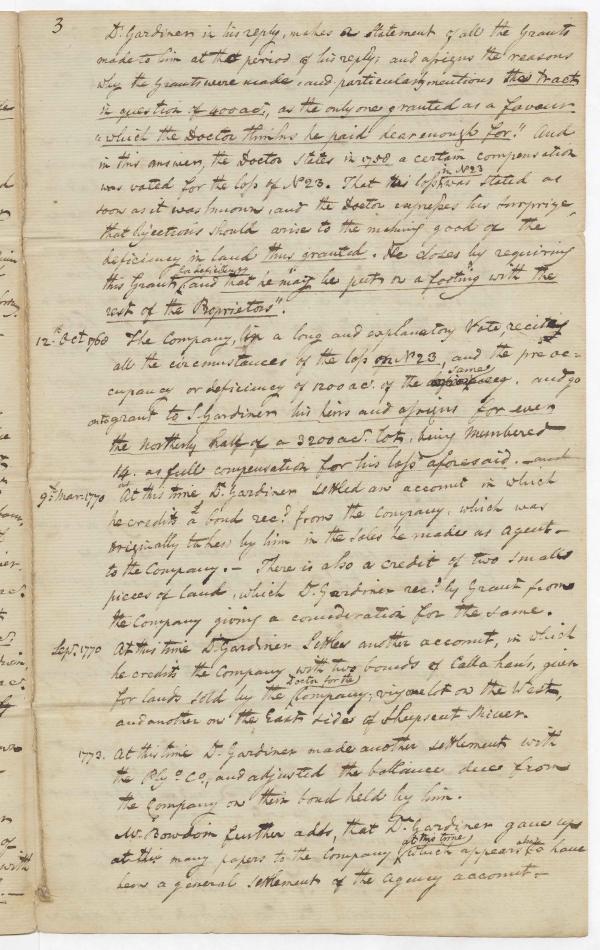 3
Dr. Gardiner in his reply, makes a statement of all the Grants
made to him at the period of his reply; and assigns the reasons
why the Grants were made, and particularly mentions the Tract
in question of 400 acs., as the only one granted as a favour
"which the Doctor thinks he paid dear enough for." And
in this answer, the Doctor states in 1758 a certain compensation
was voted for the loss of No 23. That this loss in No 23 was stated as
soon as it was known, and the Doctor expresses his surprize,
that objections should arise to the making good of the
deficiency in land thus granted. He closes by requiring
this Grant and that he may be put on a footing with the
rest of the Proprietors".
12th Oct 1768 The Company, in a long and explanatory Vote, reciting
all the circumstances of the loss on No 23, and the pre oc-
cupancy or deficiency of 1200 ac. of the same and go
on to grant to S. Gardiner his heirs and assigns for ever
the Northerly half of a 3200 ac. lot, being Numbered
14. as full compensation for his loss aforesaid.
9th Mar. 1770 At this time Dr. Gardiner settled an account in which
he credits a bond recd. from the Company, which was
originally taken by him in the sales he made as Agent
to the Company. — There is also a credit of two small
pieces of land, which Dr. Gardiner recd. by Grant from
the Company giving a consideration for the same.
Sept. 1770 At this time Dr. Gardiner settles another account, in which
he credits the Company with two bonds of Callahans, given
for lands sold by the Doctor for the Company; viz one lot on the West,
and another on the East side of Sheepscut River.
1773. At this time Dr. Gardiner made another settlement with
the Plyo. Co., and adjusted the ballance due from
the Company on their bond held by him.
Mr. Bowdoin further adds, that Dr. Gardiner gave up
at this time many papers to the Company which appears to have
been a general settlement of the agency account.